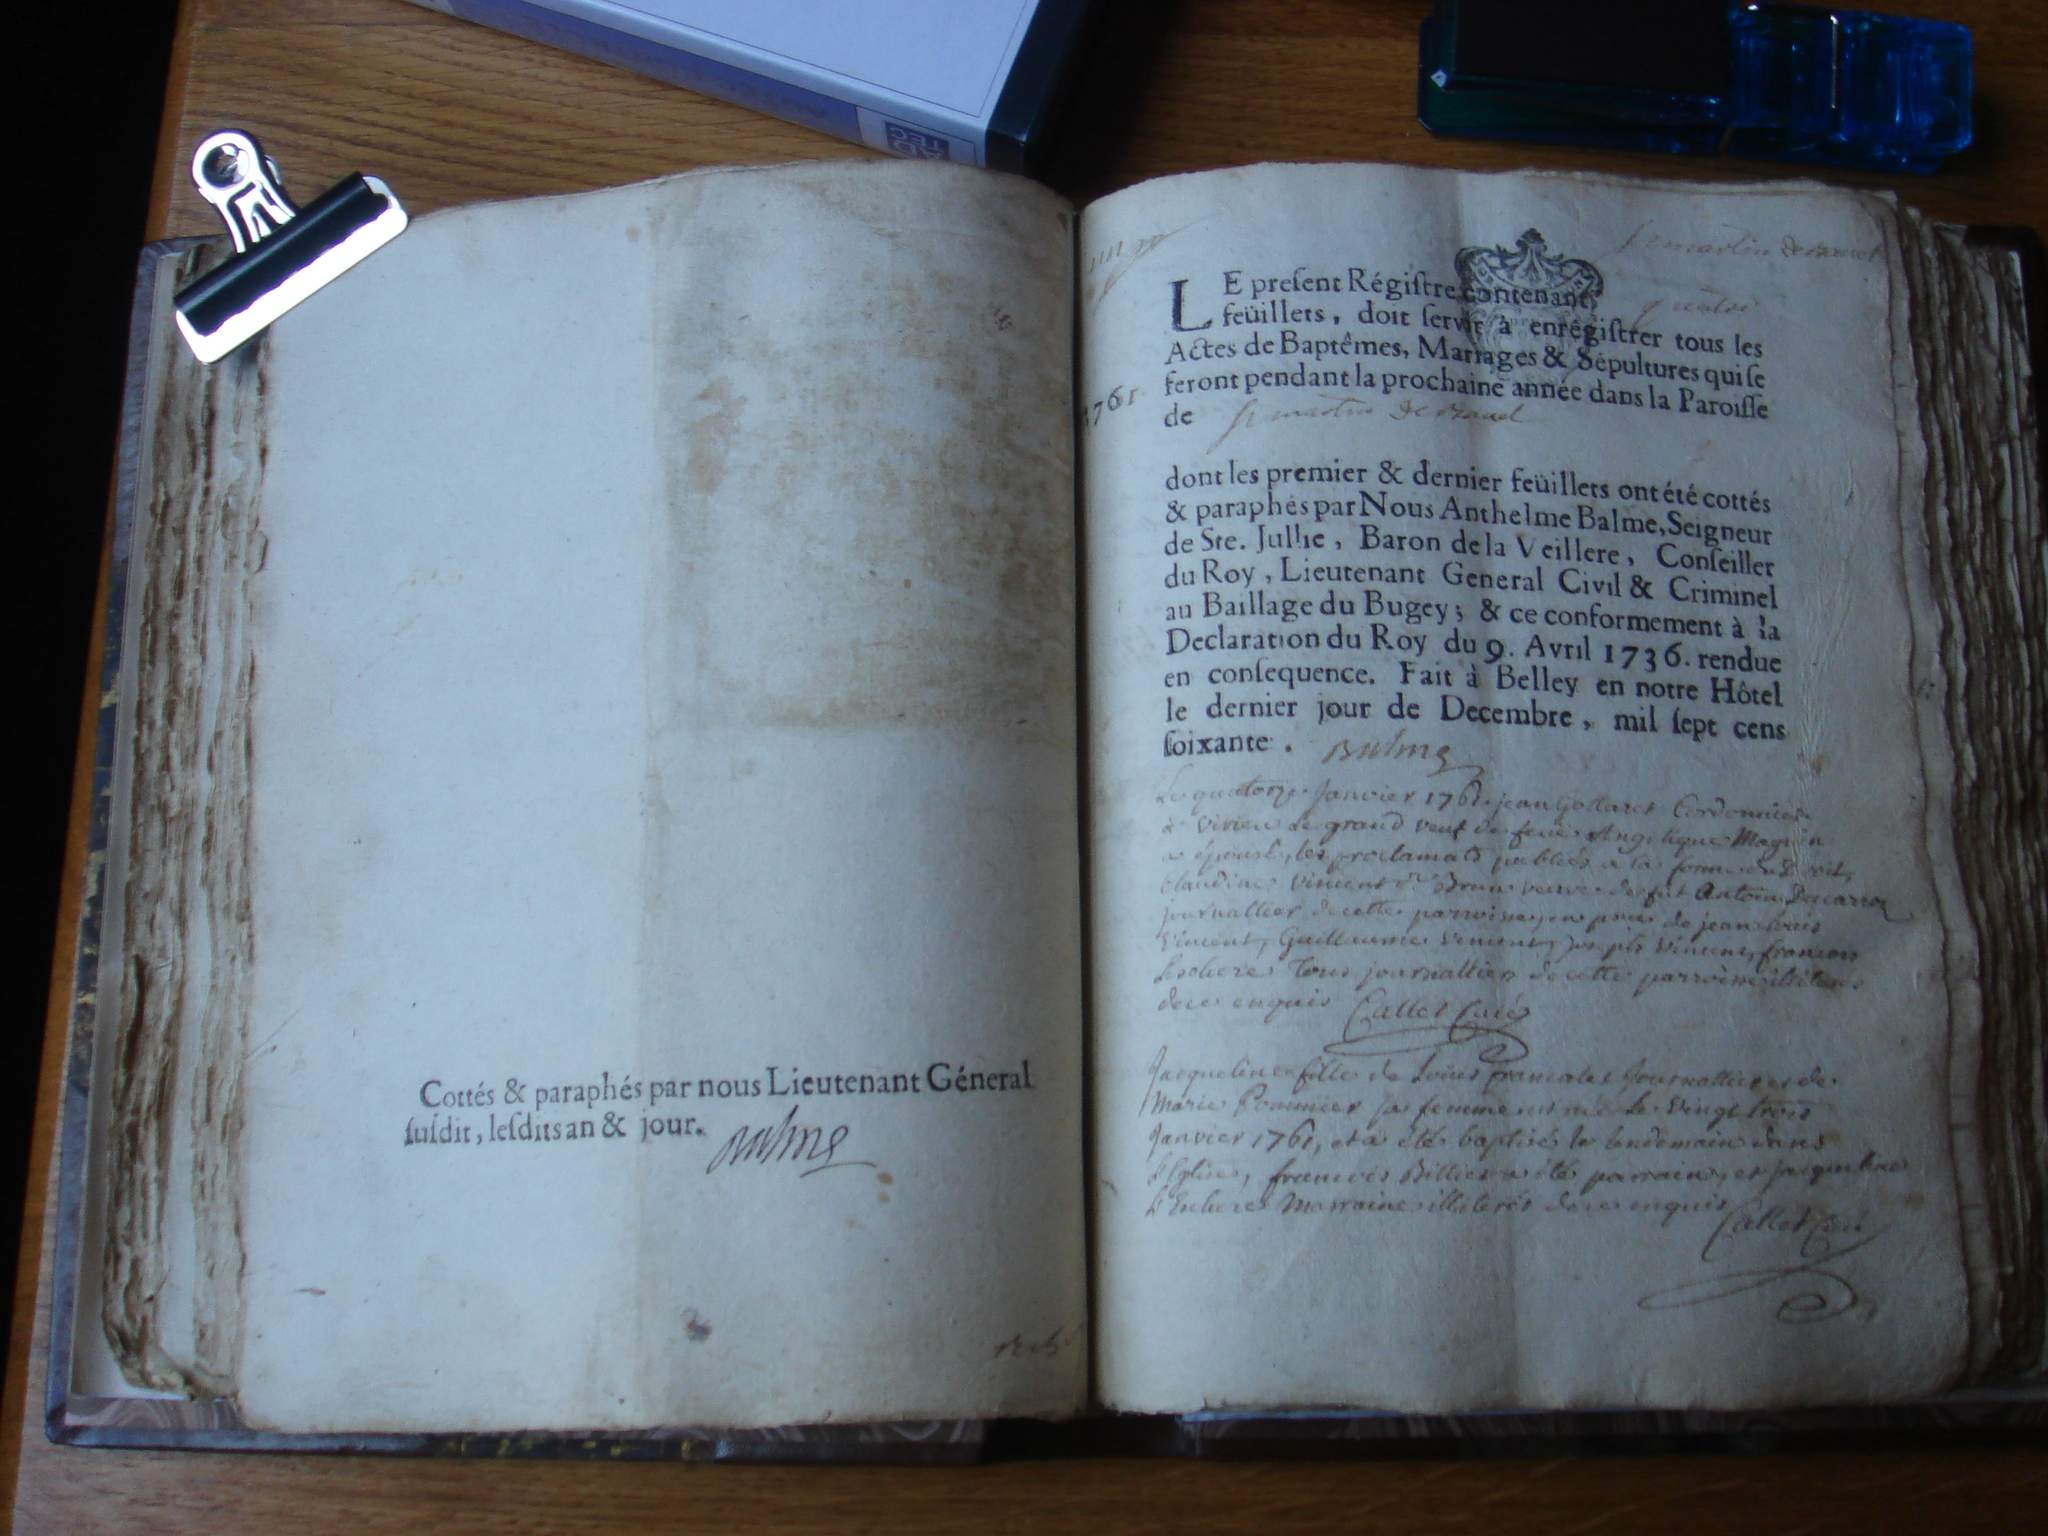 Cottés & paraphés par nous Lieutenant Géneral
susdit, lesdits an & jour.
Balme
1761
LE present Régistre contenant quatre
feüillets, doit servir à enrégistrer tous les
Actes de Baptêmes, Mariages & Sépultures qui se
feront pendant la prochaine année dans la Paroisse
de St martin de
dont les premier & dernier feüillets ont été cottés
& paraphés par Nous Anthelme Balme, Seigneur
de Ste. Jullie, Baron de la Veillere, Conseiller
du Roy, Lieutenant General Civil & Criminel
au Baillage du Bugey; & ce conformement à la
Declaration du Roy du 9. Avril 1736. rendue
en consequence. Fait à Belley en notre Hôtel
le dernier jour de Decembre, mil sept cens
soixante. Balme
Le quatorze Janvier 1761 jean Cordonnier
à Virieu le grand veuf de feüe Angelique
a épousé, les proclamats publiés a la forme du Droit,
Claudine Vincent veuve de fut Antoine
journallier de cette parroisse, en pnce de jean Loüis
Vincent, Guillaume Vincent, joseph Vincent, françois
Lechere Tous journalliers de cette parroisse illiterés
de ce enquis Callet Curé
Jacqueline fille de Loüis francalet Journallier et de
Marie Pommier sa femme est née le vingt trois
Janvier 1761, et a été baptisée le lendemain dans
l'Eglise, francois Billier a été parrain, et jacqueline
Lechere Marraine illiterés de ce enquis
Callet Curé